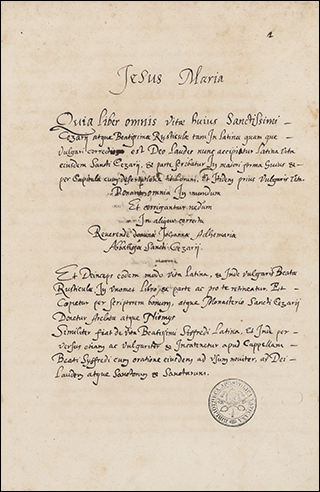 1
Jesus Maria
Quia liber omnis vitæ huius Sanctissimi
Cezarij atque Beatissimæ Rusticulæ tam In Latina quam que
Vulgari est Deo Laudes nunc accipiatur Latina Vita
eiusdem Sancti Cezarij, & parte scribatur In maiori forma
per Capitula cum, et Ibidem prius Vulgaris Vita
omnia In mundum
Et corrigantur nedum
In aliquo correcta
Reverende domine Johannæ Adhemaria
Abbatissæ Sancti Cezarij.
Et Deinceps eodem modo vita Latina, & Inde vulgaris Beatæ
Rusticulæ In unomet Libro & parte ac pro te retineatur Et
Copietur per scriptorem bonum, atque Monasterio Sancti Cezarij
Donetur Arelate atque
Similiter fiat de vita Beatissimi Syffredi Latina, et Inde per
versus etiam ac vulgariter & Incontinetur apud Capellam
Beati Syffredi cum oratione eiusdem ad usum noviter, ad Dei
Laudem atque Sanctorum & Sanctarum.